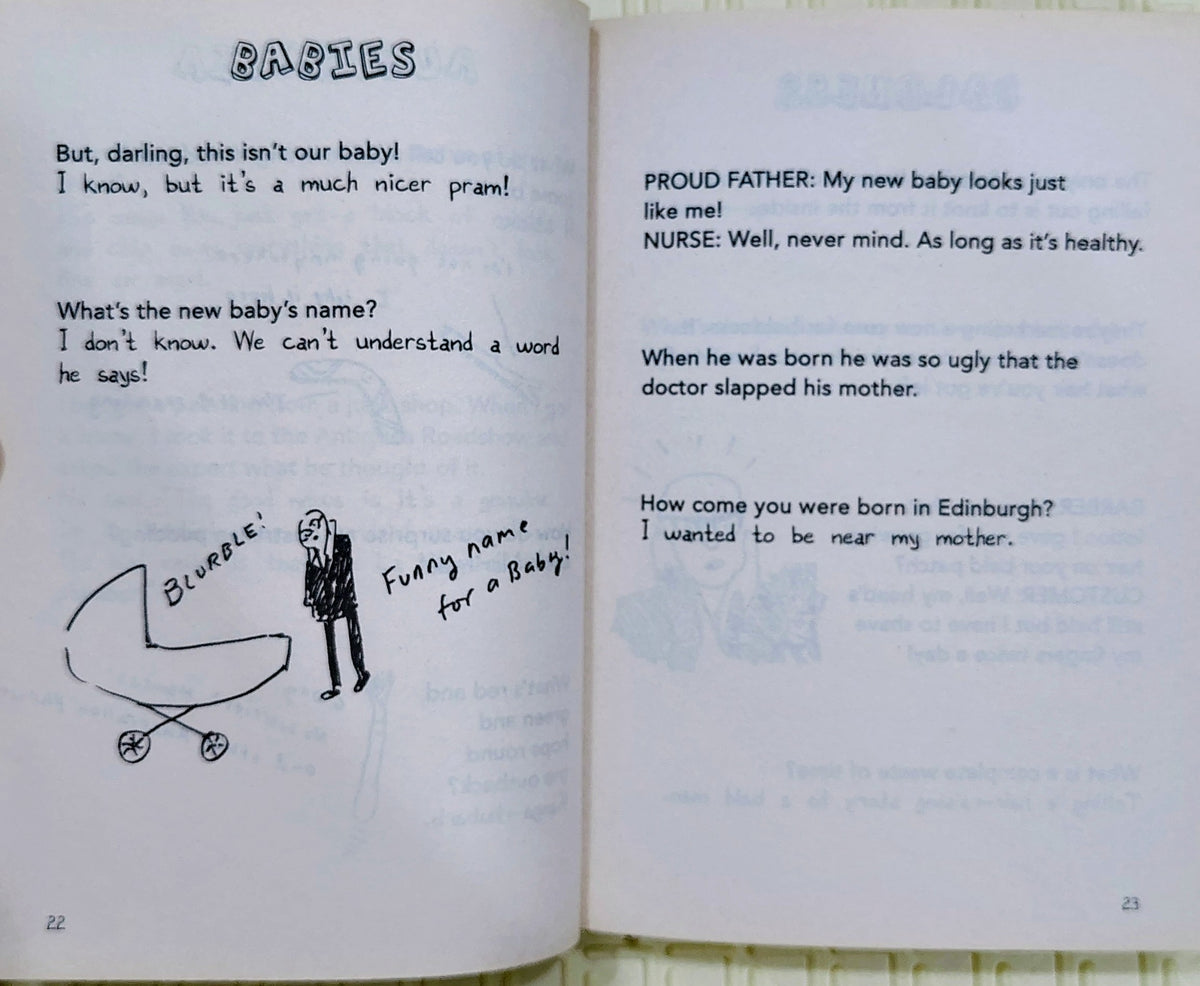 BABIES
But, darling, this isn't our baby!
I know, but it's a much nicer pram!
What's the new baby's name?
I don't know. We can't understand a word
he says!
BLURBLE!
Funny name
for a Baby!
22
PROUD FATHER: My new baby looks just
like me!
NURSE: Well, never mind. As long as it's healthy.
When he was born he was so ugly that the
doctor slapped his mother.
How come you were born in Edinburgh?
I wanted to be near my mother.
23